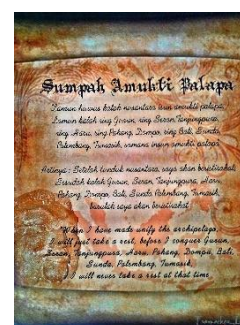 Sumpah Amukti Palapa
Lamun huwus kalah nusantara isun amukti palapa,
Lamun kalah ring Gurun, ring Seran, Tanjungpura,
ring Haru, ring Pahang, Dompo, ring Bali, Sunda,
Palembang, Tumasik, samana isun amukti palapa
Artinya: Setelah tunduk nusantara, saya akan beristirahat
Sesudah kalah Gurun, Seran, Tanjungpura, Haru,
Pahang, Dompo, Bali, Sunda Palembang, Tumasik,
barulah saya akan beristirahat
When I have made unify the archipelago,
I will just take a rest, before I conquer Gurun,
Seran, Tanjungpura, Haru, Pahang, Dompu, Bali,
Sunda, Palembang, Tumasik,
I will never take a rest at that time